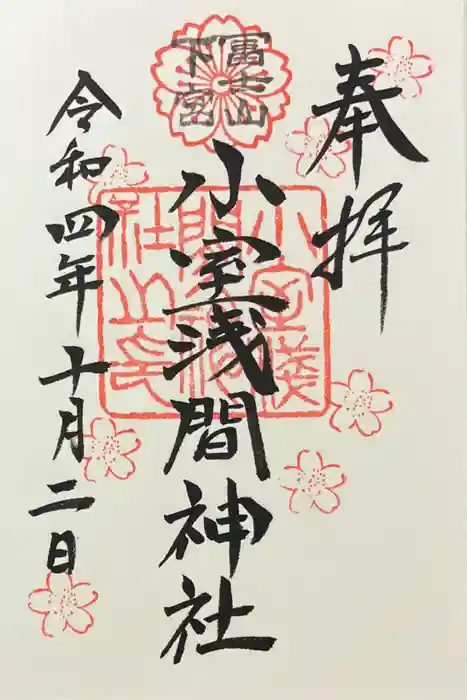 奉拝
冨士山
下宮
小室浅間神社
令和四年十月二日